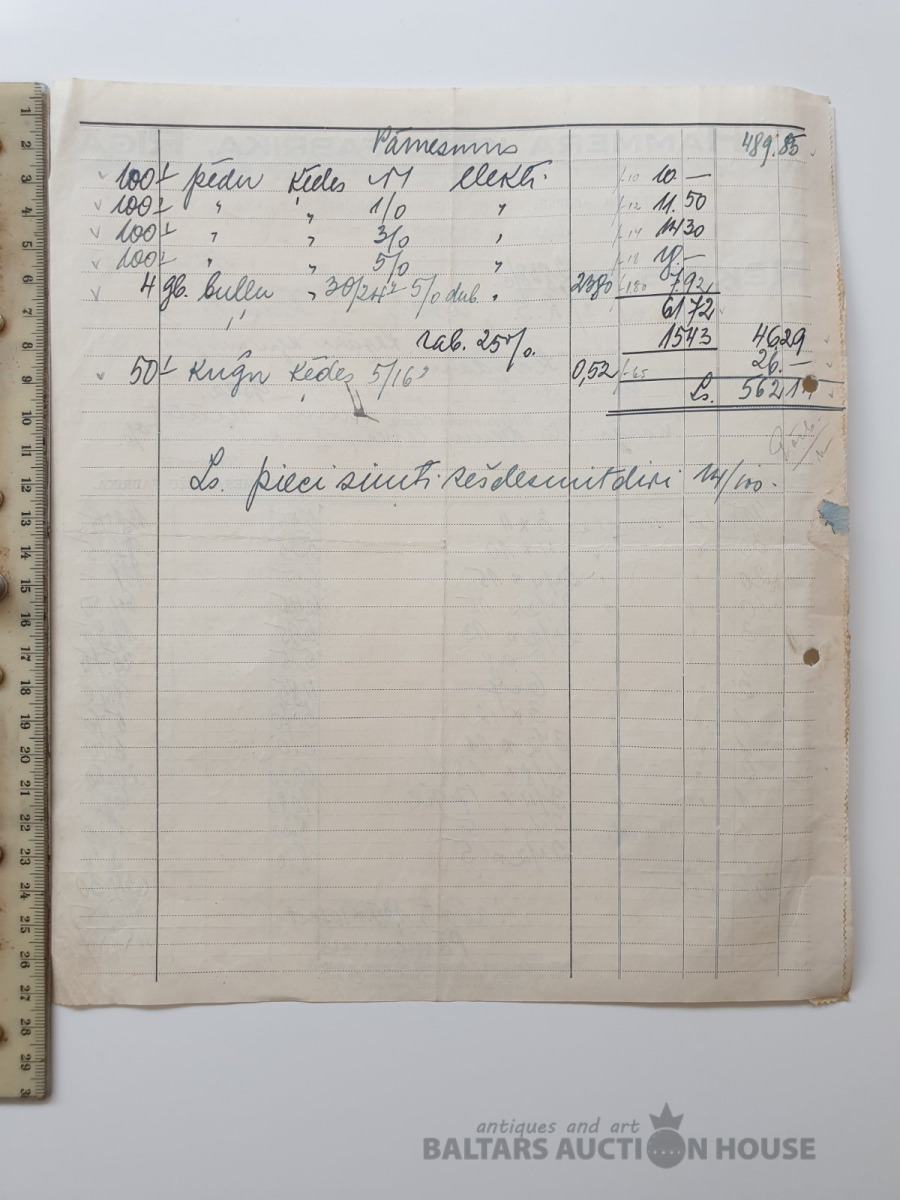 Pārnesums 489.85
100 pēdu ķēdes N1 elektr. /-10 10.—
100 " " 1/0 " /-12 11.50
100 " " 3/0 " /-14 14 30
100 " " 5/0 " /-18 —
4 gb. buļļu " 30/24" 5/0 dub. " 23 1/2 0 /-180 7.92
61 72
rab. 25%. 15 43 46.29
50 kuģu ķēdes 5/16" 0,52 /-65 26.—
Ls. 562,14
Ls. pieci simti sešdesmitdivi 14/100.
1 2 3 4 5 6 7 8 9 10 11 12 13 14 15 16 17 18 19 20 21 22 23 24 25 26 27 28 29
antiques and art
BALTARS AUCTION HOUSE